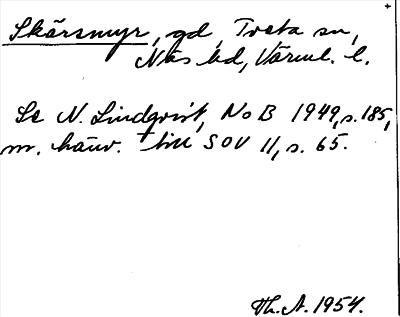 Skårsmyr, gd, Tveta sn,
Näs hd, Värml. l.
Se N. Lindqvist, NoB 1949, s. 185,
m. hänv. till SOV 11, s. 65.
Th. A. 1954.